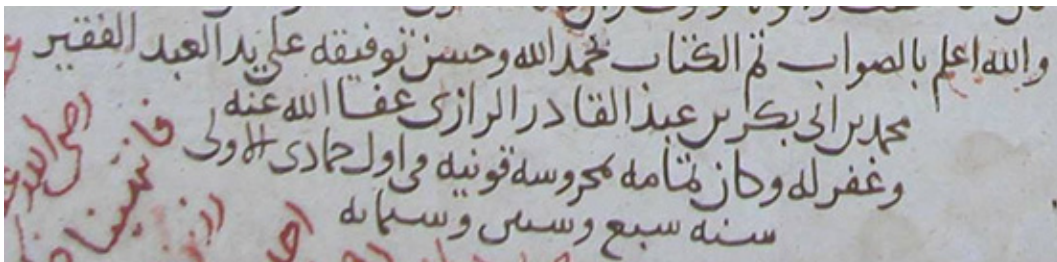 والله اعلم بالصواب تم الكتاب بحمد الله وحسن توفيقه على يد العبد الفقير
محمد بن ابى بكر بن عبد القادر الرازى عفا الله عنه
وغفر له وكان تمامه بمحروسه قونيه فى اول جمادى الاولى
سنه سبع وستين وستمايه